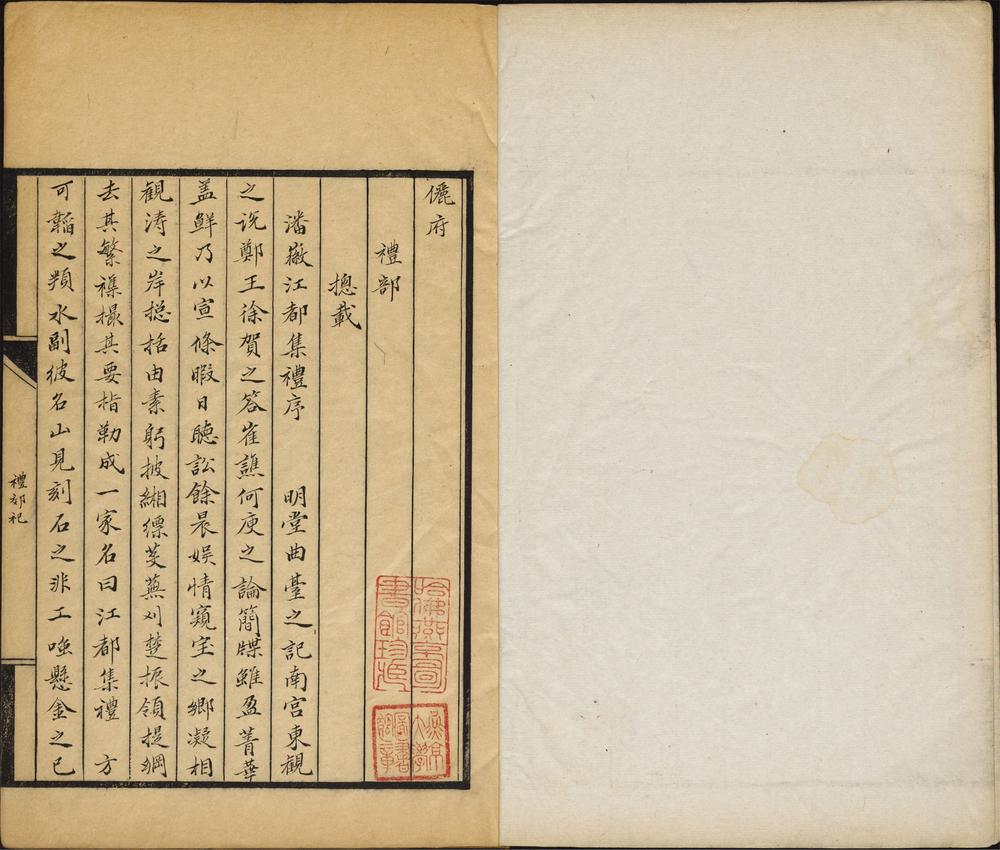 儷府
禮部
摠載
潘徽江都集禮序 明堂曲臺之記南宮東觀
之說鄭王徐賀之答崔譙何庾之論簡牒雖盈菁華
盖鮮乃以宣條暇日聽訟餘晨娛情窺宝之鄉凝相
觀濤之岸摠括油素躬披緗縹芟蕪刈楚振領提綱
去其繁襍撮其要指勒成一家名曰江都集禮 方
可韜之頖水副彼名山見刻石之非工嗤懸金之已
禮部祀
哈佛燕京圖書館珍藏
燕京大學圖書館章